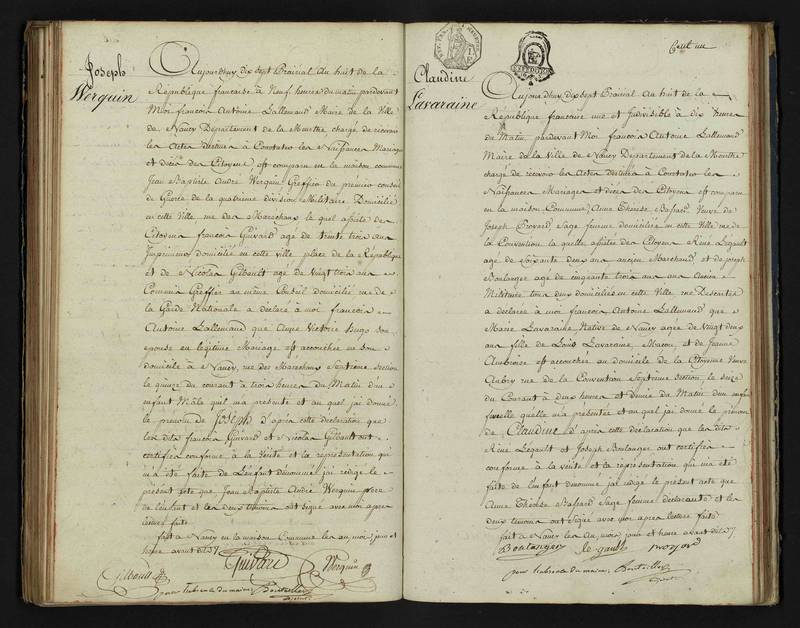 Joseph
Werquin
Aujourdhuy dix sept Prairial an huit de la
République francaise à Neuf heures du matin pardevant
Moi francois Antoine Lallemand Maire de la Ville
de Nancy Departement de la Meurthe chargé de recevoir
les Actes destinés à Constater les Naissances Mariages
et décès des Citoyens est comparu en la maison commune
Jean Baptiste André Werquin Greffier du premier conseil
de Guerre de la quatrieme division Militaire Domicilié
en cette Ville rue des Marechaux le quel assisté de
Citoyens francois Guivard agé de trente trois ans
Imprimeur domicilié en cette ville place de la République
et de Nicolas Gibault agé de Vingt trois ans
Commis Greffier au même Conseil domicilié rue de
la Garde Nationale a déclaré à moi francois
Antoine Lallemand que Victoire Hugo Son
epouse en légitime Mariage est accouchée en son
domicile à Nancy, rue des Marechaux Septieme Section
le quinze du courant à trois heures du Matin d'un
enfant Mâle quil m'a présenté et au quel jai donné
le prenom de Joseph D'après cette déclaration que
les dits francois Guivard et Nicolas Gibault ont
certifiée conforme à la Vérité et la représentation qui
m'a été faite de L'enfant dénommé jai rédigé le
présent acte que Jean Baptiste André Werquin pere
de l'enfant et les deux témoins ont signé avec moi apres
lecture faite
fait à Nancy en la maison Commune les an, mois jour et
heure avant dits
Gibault Guivard Werquin
pour l'absence du maire
Claudine
Lavaraine
Aujourdhuy dix sept Prairial an huit de la
République francaise une et Indivisible à dix heures
du Matin pardevant Moi francois Antoine Lallemand
Maire de la Ville de Nancy Departement de la Meurthe
chargé de recevoir les Actes destinés à Constater les
Naissances Mariages et décès des Citoyens est comparu
en la maison Commune, Anne Thérèse Veuve de
Joseph Sage femme domiciliée en cette Ville rue de
la Convention la quelle assistée des Citoyens Réné Legault
agé de Soixante deux ans ancien Marchand et de joseph
Boulanger agé de cinquante trois ans ancien
Militaire tous deux domiciliés en cette Ville, rue Descartes
a déclarée à moi francois Antoine Lallemand que
Marie Lavaraine Native de Nancy agée de Vingt deux
ans fille de Louis Lavaraine, Macon, et de Jeanne
Ambroise est accouchée au domicile de la Citoyenne Veuve
Aubry rue de la Convention Septieme section, le seize
du Courant à deux heures et demie du Matin d'un enfant
femelle quelle m'a présentée et au quel jai donné le prenom
de Claudine d'après cette déclaration que les dits
Réné Legault et Joseph Boulanger ont certifiée
conforme à la Vérité et la représentation qui m'a été
faite de l'enfant denommé jai rédigé le présent acte que
Anne Thérèse Sage femme déclarante et les
deux témoins ont signé avec moi apres lecture faite
fait à Nancy les an, mois jour et heure avant dits
Boulanger le gault
pour l'absence du maire